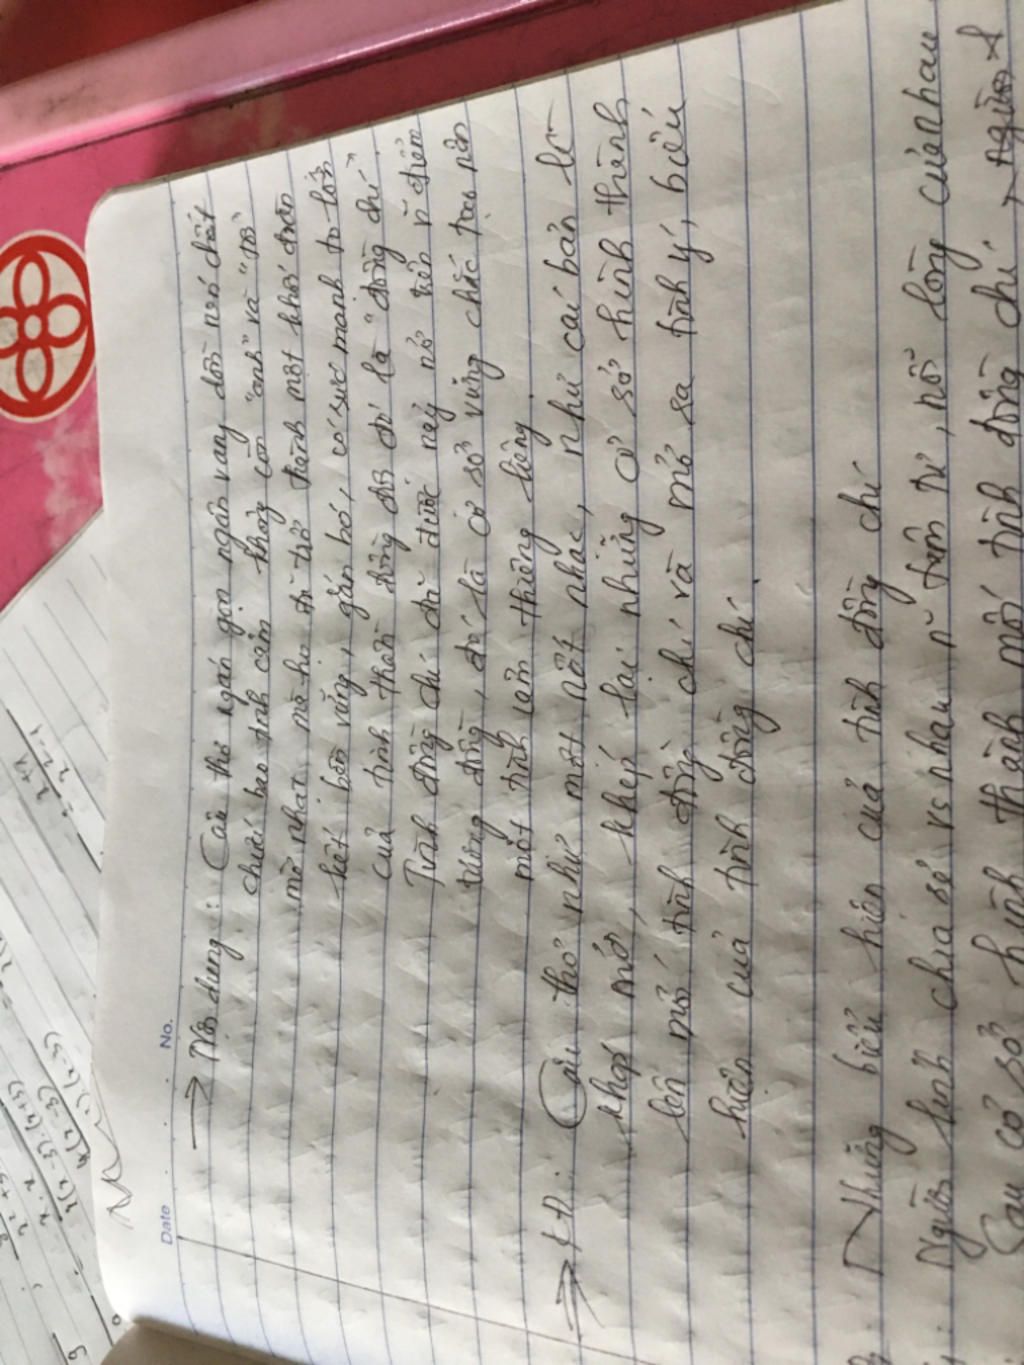 Date No.
→ Nội dung: Câu thơ ngắn gọn ngân vang dồn nén chất
chứa bao tình cảm không còn "anh" và "tôi"
mờ nhạt mà họ đã trở thành một khối đoàn
kết bền vững, gắn bó, có sức mạnh to lớn
của tình thân đồng đội đó là "đồng chí"
Tình đồng chí đã được nảy nở trên n điểm
tương đồng, đó là cơ sở vững chắc tạo nên
một tình cảm thiêng liêng
→ Câu thơ như một nốt nhạc, như cái bản lề
khép mở, khép lại những cơ sở hình thành
lên mối tình đồng chí và mở ra tình ý, biểu
hiện của tình đồng chí.
Những biểu hiện của tình đồng chí
Người lính chia sẻ vs nhau n tâm tư, nỗi lòng của nhau
Sau cơ sở hình thành mối tình đồng chí,